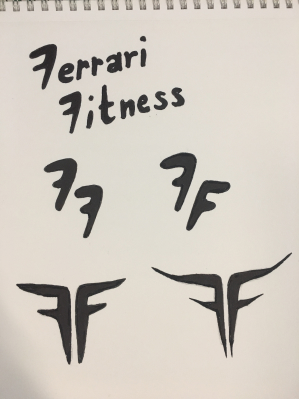 Ferrari
Fitness
FF FF
FF FF